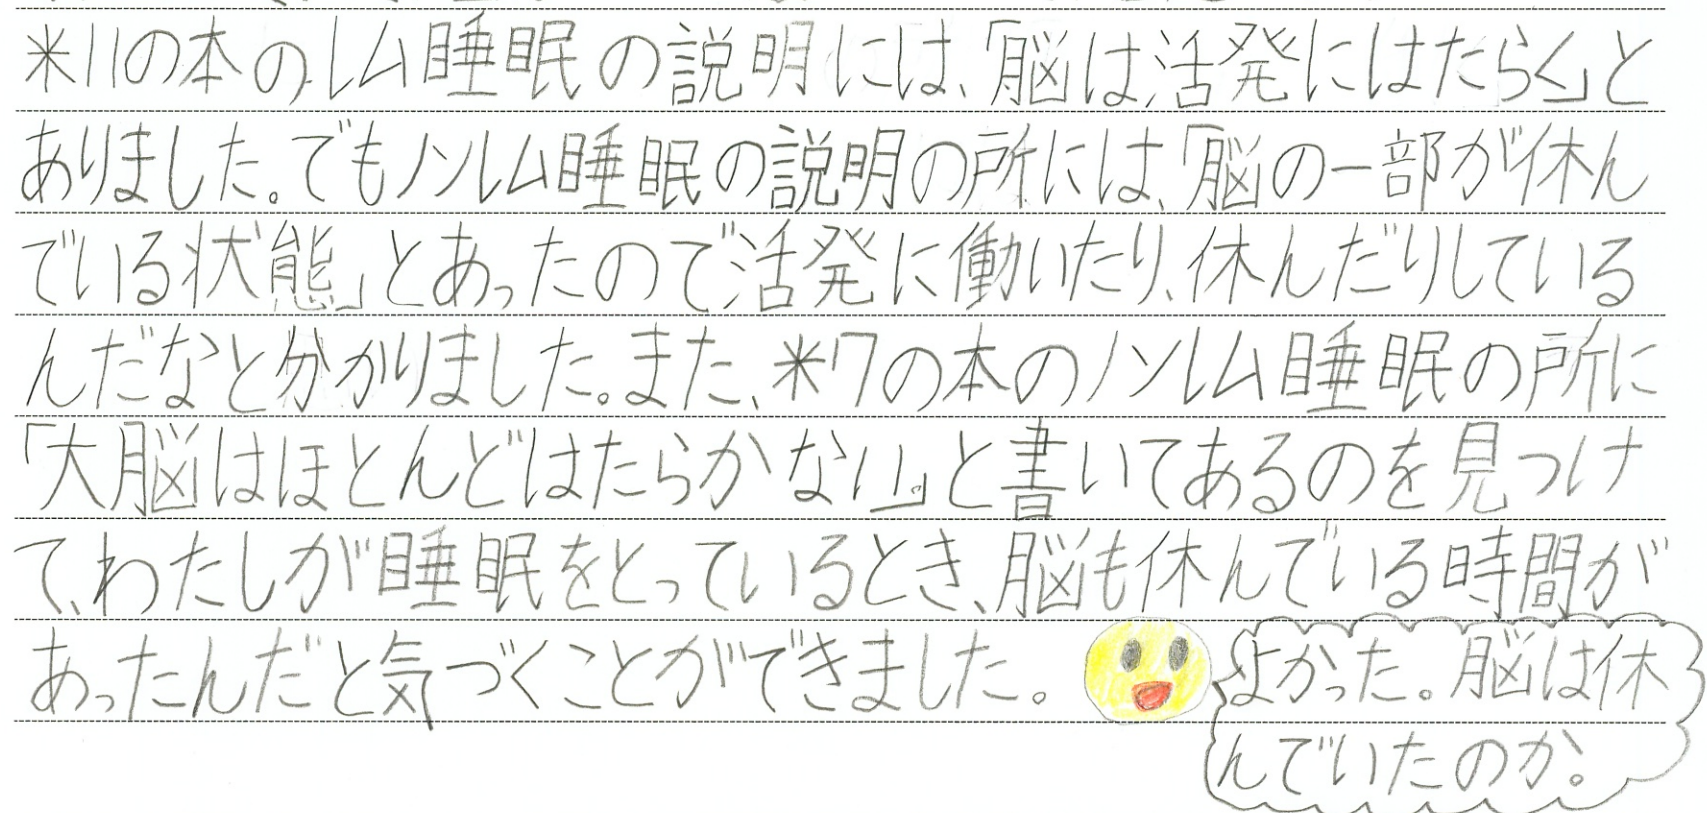 ※11の本のレム睡眠の説明には、「脳は活発にはたらく」と
ありました。でもノンレム睡眠の説明の所には、「脳の一部が休ん
でいる状態」とあったので活発に働いたり、休んだりしている
んだなと分かりました。また、※7の本のノンレム睡眠の所に
「大脳はほとんどはたらかない。」と書いてあるのを見つけ
て、わたしが睡眠をとっているとき、脳も休んでいる時間が
あったんだと気づくことができました。
よかった。脳は休
んでいたのか。